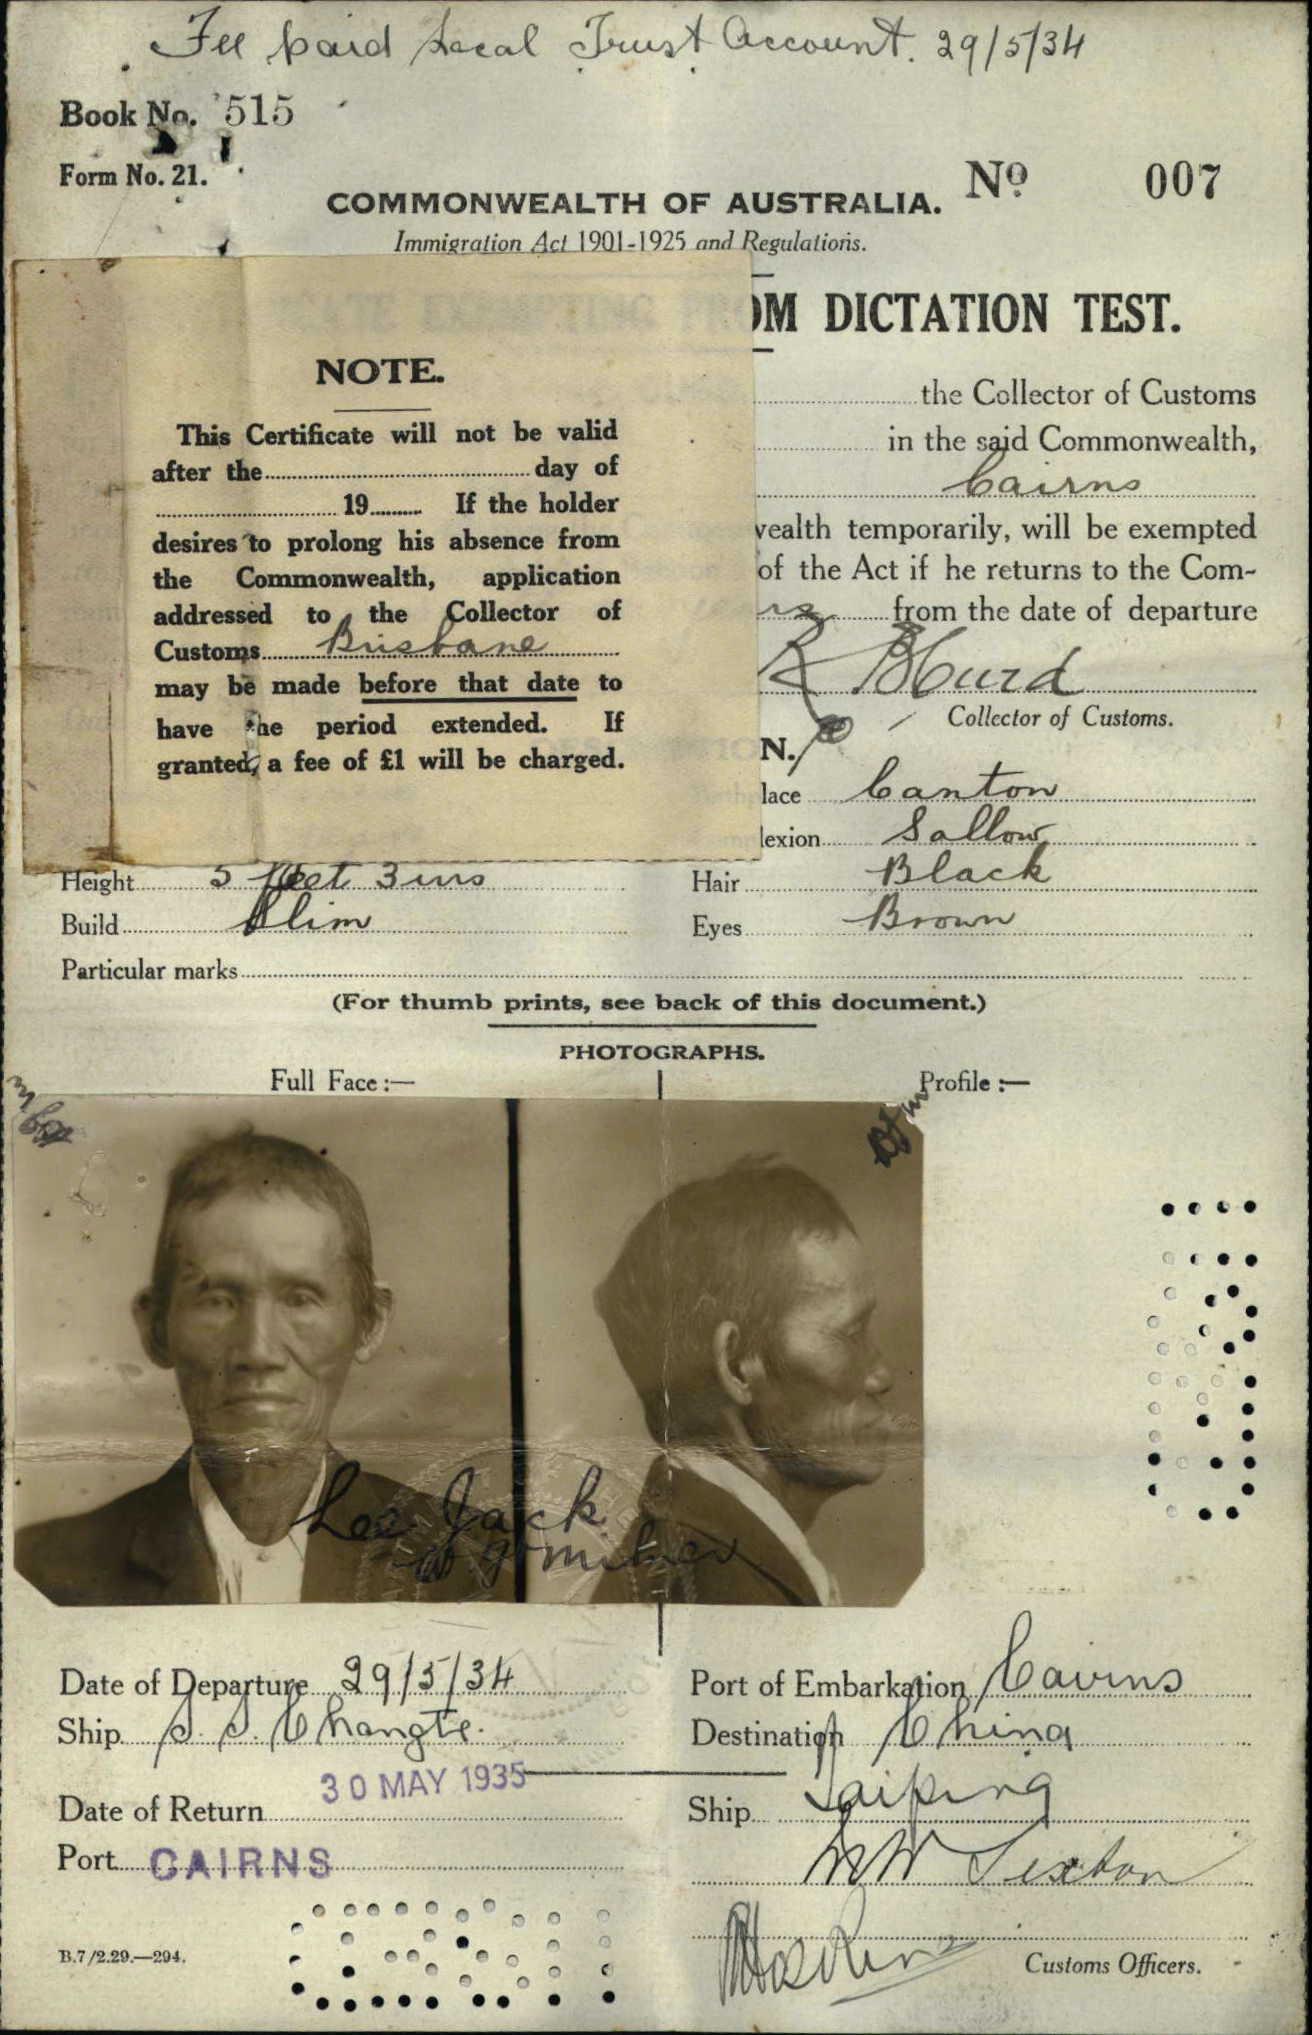 Fee paid Local Trust Account. 29/5/34
Book No. 515
Form No. 21.
No 007
COMMONWEALTH OF AUSTRALIA.
Immigration Act 1901-1925 and Regulations.
OM DICTATION TEST.
NOTE.
This Certificate will not be valid
after the day of
19 If the holder
desires to prolong his absence from
the Commonwealth, application
addressed to the Collector of
Customs Brisbane
may be made before that date to
have the period extended. If
granted, a fee of £1 will be charged.
the Collector of Customs
in the said Commonwealth,
Cairns
wealth temporarily, will be exempted
of the Act if he returns to the Com-
from the date of departure
Collector of Customs.
N.
lace Canton
lexion Sallow
Height 5 feet 3 ins
Hair Black
Build Slim
Eyes Brown
Particular marks
(For thumb prints, see back of this document.)
PHOTOGRAPHS.
Full Face :—
Profile :—
Lee Jack
Date of Departure 29/5/34
Port of Embarkation Cairns
Ship S. S. Changte.
Destination China
Date of Return 30 MAY 1935
Ship Taiping
Port CAIRNS
Sexton
B.7/2.29.—294.
Customs Officers.